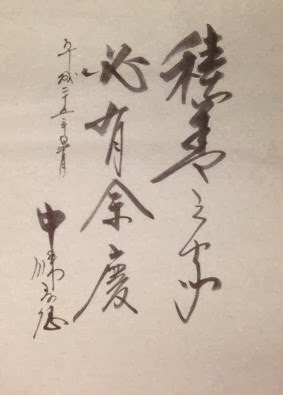 積善之家
必有余慶
平成二十五年
中